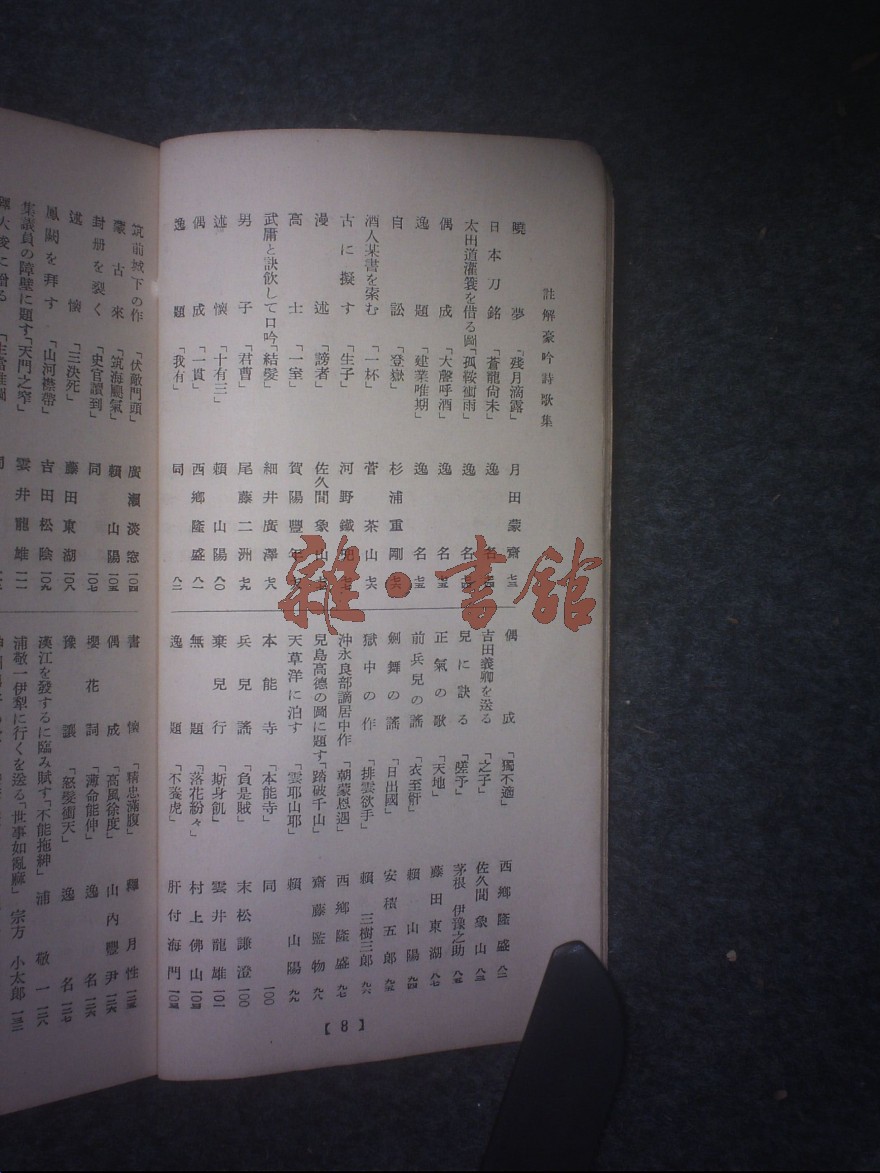 註解豪吟詩歌集
曉夢「殘月滴露」月田蒙齋 七三
日本刀銘「蒼龍尙未」逸名
太田道灌簑を借る圖「孤鞍衝雨」逸名
偶成「大醛呼酒」逸名
逸題「建業唯期」逸名
自訟「登嶽」杉浦重剛
酒人某書を索む「一杯」菅茶山 七六
古に擬す「生子」河野鐵兜
漫述「謗者」佐久間象山
高士「一室」賀陽豐年
武庸と訣飲して口吟「結髮」細井廣澤 七八
男子「君曹」尾藤二洲 七九
述懷「十有三」賴山陽 八〇
偶成「一貫」西鄕隆盛 八一
逸題「我有」同 八二
偶成「獨不適」西鄕隆盛 八二
吉田義卿を送る「之子」佐久間象山 八三
兒に訣る「嗟予」茅根伊豫之助 八五
正氣の歌「天地」藤田東湖 八七
前兵兒の謠「衣至骭」賴山陽 九四
劍舞の謠「日出國」安積五郎 九五
獄中の作「排雲欲手」賴三樹三郎 九六
沖永良部謫居中作「朝蒙恩遇」西鄕隆盛 九七
兒島高德の圖に題す「踏破千山」齋藤監物 九八
天草洋に泊す「雲耶山耶」賴山陽 九九
本能寺「本能寺」同 一〇〇
兵兒謠「負是賊」末松謙澄 一〇〇
棄兒行「斯身飢」雲井龍雄 一〇一
無題「落花紛々」村上佛山 一〇四
逸題「不養虎」肝付海門 一〇五
【8】
筑前城下の作「伏敵門頭」廣瀨淡窓 一〇四
蒙古來「筑海颶氣」賴山陽 一〇五
封册を裂く「史官讀到」同 一〇七
述懷「三決死」藤田東湖 一〇八
鳳闕を拜す「山河襟帶」吉田松陰 一〇九
集議員の障壁に題す「天門之窄」雲井龍雄 一一一
書懷「精忠滿腹」釋月性 一二五
偶成「高風徐度」山內豐尹 一二六
櫻花詞「薄命能伸」逸名 一二六
豫讓「怒髮衝天」逸名 一二七
漢江を發するに臨み賦す「不能拖紳」浦敬一 一二八
浦敬一伊犂に行くを送る「世事如亂麻」宗方小太郎 一三二
雜・書館